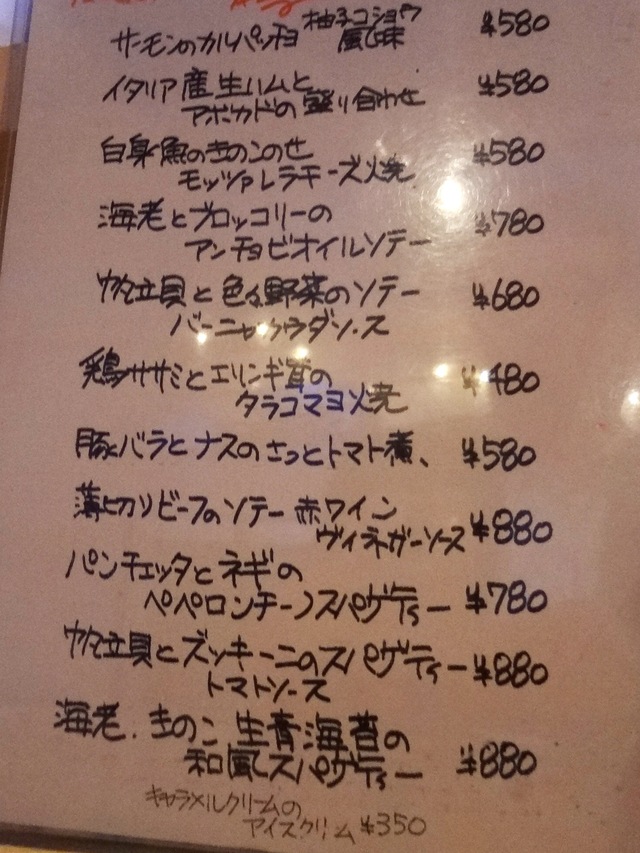 サーモンのカルパッチョ 柚子コショウ風味 ¥580
イタリア産生ハムと
アボカドの盛り合わせ ¥580
白身魚のきのこのせ
モッツァレラチーズ焼 ¥580
海老とブロッコリーの
アンチョビオイルソテー ¥780
帆立貝と色々野菜のソテー
バーニャカウダソース ¥680
鶏ササミとエリンギ茸の
タラコマヨ焼 ¥480
豚バラとナスのさっとトマト煮、 ¥580
薄切りビーフのソテー 赤ワイン
ヴィネガーソース ¥880
パンチェッタとネギの
ペペロンチーノスパゲティー ¥780
帆立貝とズッキーニのスパゲティー
トマトソース ¥880
海老、きのこ 生青海苔の
和風スパゲティー ¥880
キャラメルクリームの
アイスクリーム ¥350